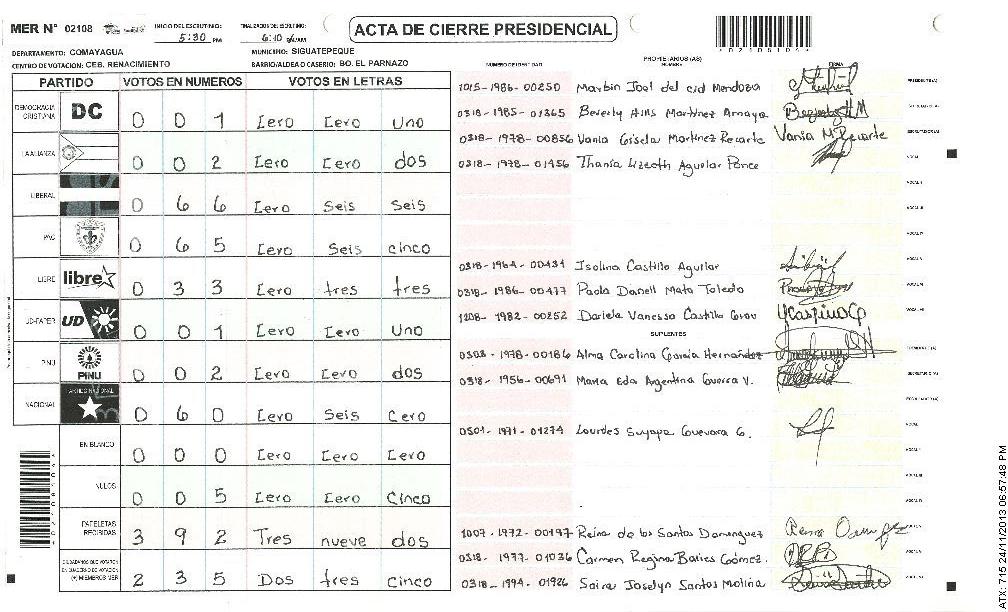 MER N° 02108
INICIO DEL ESCRUTINIO: 5:30 PM
FINALIZACION DEL ESCRUTINIO: 6:10
ACTA DE CIERRE PRESIDENCIAL
DEPARTAMENTO: COMAYAGUA
MUNICIPIO: SIGUATEPEQUE
CENTRO DE VOTACION: CEB. RENACIMIENTO
BARRIO/ALDEA O CASERIO: BO. EL PARNAZO
PARTIDO VOTOS EN NUMEROS VOTOS EN LETRAS
NUMERO DE IDENTIDAD PROPIETARIOS (AS) NOMBRE FIRMA
DEMOCRACIA CRISTIANA DC 0 0 1 Cero Cero Uno
LA ALIANZA 0 0 2 Cero Cero dos
LIBERAL 0 6 6 Cero Seis Seis
PAC 0 6 5 Cero Seis cinco
LIBRE libre 0 3 3 Cero tres tres
UD-FAPER UD 0 0 1 Cero Cero Uno
PINU PINU 0 0 2 Cero Cero dos
NACIONAL PARTIDO NACIONAL 0 6 0 Cero Seis Cero
EN BLANCO 0 0 0 Cero Cero Cero
NULOS 0 0 5 Cero Cero Cinco
PAPELETAS RECIBIDAS 3 9 2 Tres nueve dos
CIUDADANOS QUE VOTARON EN CUADERNO DE VOTACION (+) MIEMBROS MER 2 3 5 Dos tres cinco
1015-1986-00250 Marbin Joel del cid Mendoza
0318-1985-01365 Beverly Hills Martinez Amaya
0318-1978-00856 Vania Gisela Martinez Recarte Vania M Recarte
0318-1978-01956 Thania Lizeth Aguilar Ponce
0318-1964-00431 Isolina Castillo Aguilar
0318-1986-00477 Paola Danell Mata Toledo
1208-1982-00252 Dariela Vanessa Castillo
SUPLENTES
0303-1978-00186 Alma Carolina Garcia Hernández
0318-1956-00691 Maria Eda Argentina Guerra V.
0501-1971-01274 Lourdes Suyapa Guevara G.
1007-1972-00197 Reina de los Santos Dominguez
0318-1977-01036 Carmen Regina Batres Gómez.
0318-1994-01926 Saira Joselyn Santos Molina
ATX-715 24/11/2013 06:57:48 PM